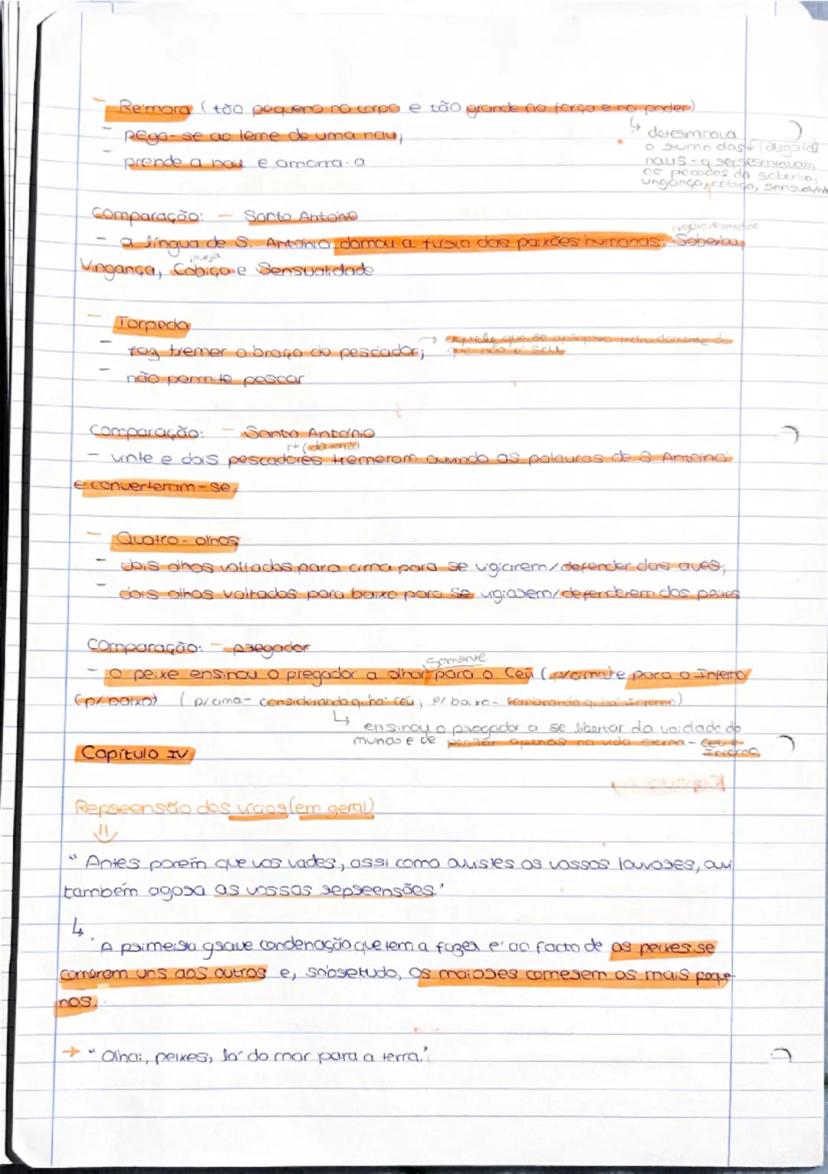 - Remora (tão pequeno no corpo e tão grande na força e no poder)
↳ determinava
o rumo das (alegoria)
naus - q representavam
os pecados da soberba,
vingança, cobiça, sensualidade
- pega-se ao leme de uma nau,
- prende a nau e amarra-a
Comparação: - Santo António
- a língua de S. António domou a fúria das paixões humanas: Soberba,
Vingança, Cobiça e Sensualidade
inveja
- Torpedo
- faz tremer o braço do pescador; → aquele que se apropria indevidamente do
que não é seu
- não permite pescar
Comparação: - Santo António
- vinte e dois pescadores tremeram ouvindo as palavras de S António
e converteram-se,
- Quatro-olhos
- dois olhos voltados para cima para se vigiarem/defender das aves,
- dois olhos voltados para baixo para se vigiarem/defenderem dos peixes
Comparação: - pregador
somente
- o peixe ensinou o pregador a olhar para o Céu (p/cima) e para o Inferno
(p/baixo) (p/cima - considerando q há céu, p/baixo - lembrando q há Inferno)
↳ ensinou o pregador a se libertar da vaidade do
mundo e de pensar apenas na vida eterna - Céu e
Inferno
Capítulo IV
Repreensão dos vícios (em geral)
⇓
"Antes porém que vos vades, assi como ouvistes os vossos louvores, ouvi
também agora as vossas repreensões."
↳
A primeira grave condenação que tem a fazer é ao facto de os peixes se
comerem uns aos outros e, sobretudo, os maiores comerem os mais peque-
nos.
→ "Olhai, peixes, lá do mar para a terra."